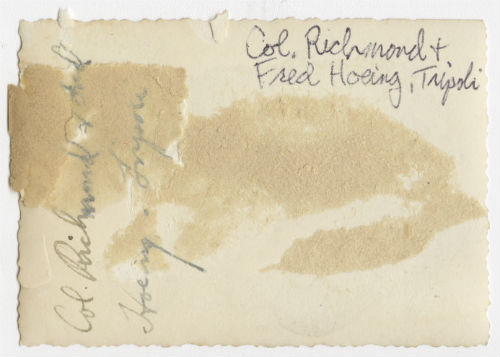 Col. Richmond +
Fred Hoeing, Tripoli
Col. Richmond +
Hoeing.